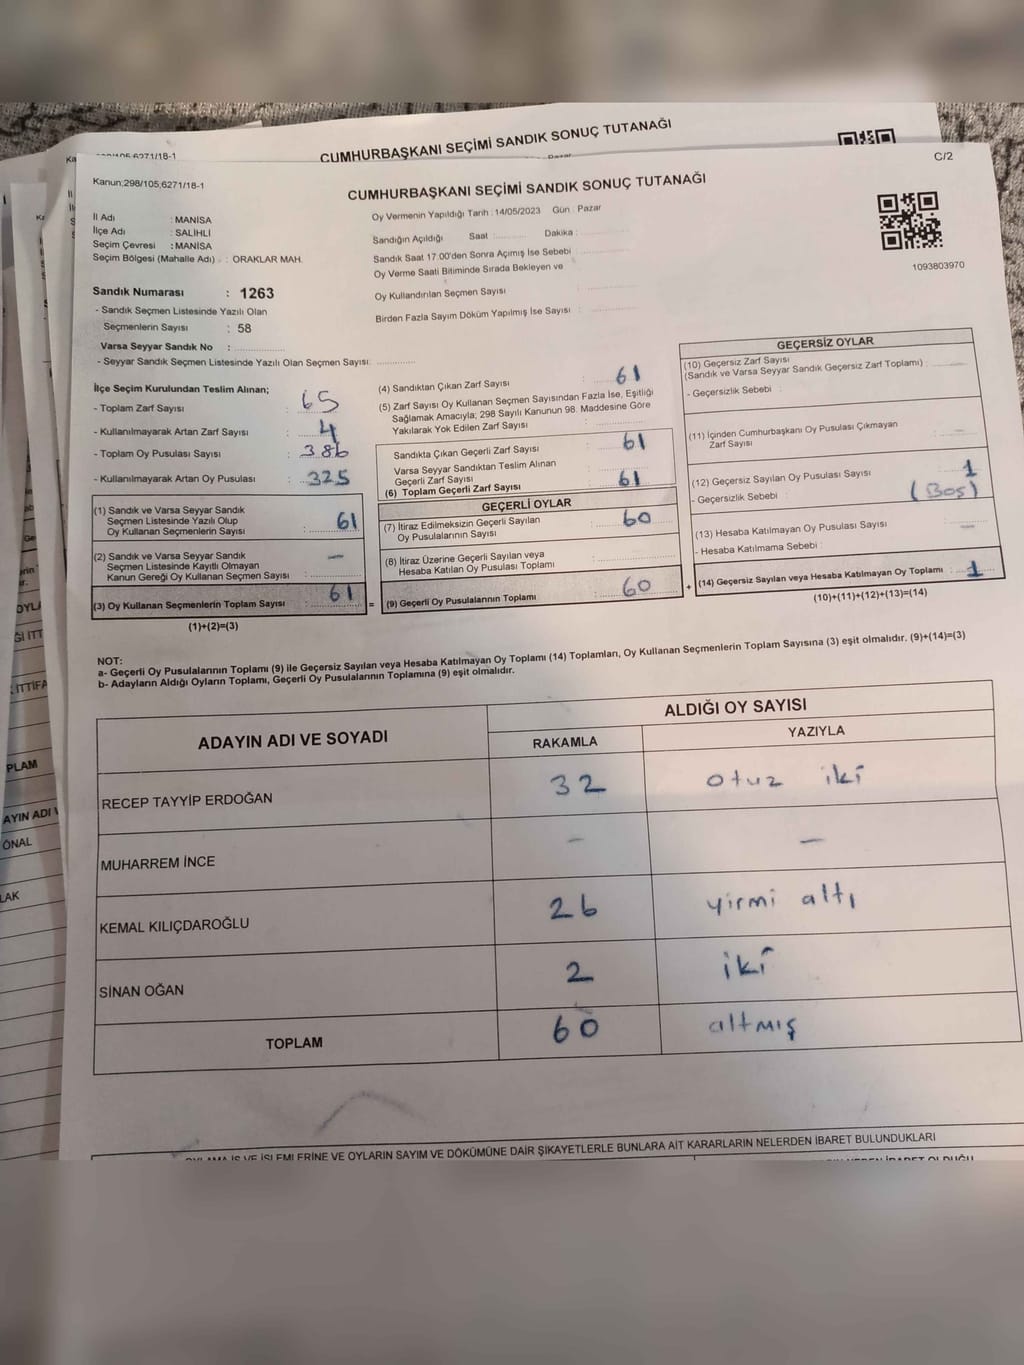 CUMHURBAŞKANI SEÇİMİ SANDIK SONUÇ TUTANAĞI
6271/18-1
C/2
Kanun;298/105;6271/18-1
CUMHURBAŞKANI SEÇİMİ SANDIK SONUÇ TUTANAĞI
İl Adı : MANİSA
İlçe Adı : SALİHLİ
Seçim Çevresi : MANİSA
Seçim Bölgesi (Mahalle Adı) : ORAKLAR MAH.
Sandık Numarası : 1263
- Sandık Seçmen Listesinde Yazılı Olan
Seçmenlerin Sayısı : 58
Varsa Seyyar Sandık No :
- Seyyar Sandık Seçmen Listesinde Yazılı Olan Seçmen Sayısı:
Oy Vermenin Yapıldığı Tarih : 14/05/2023 Gün : Pazar
Sandığın Açıldığı Saat : Dakika :
Sandık Saat 17.00'den Sonra Açımış İse Sebebi
Oy Verme Saati Bitiminde Sırada Bekleyen ve
Oy Kullandırılan Seçmen Sayısı :
Birden Fazla Sayım Döküm Yapılmış İse Sayısı :
1093803970
İlçe Seçim Kurulundan Teslim Alınan;
- Toplam Zarf Sayısı : 65
- Kullanılmayarak Artan Zarf Sayısı : 4
- Toplam Oy Pusulası Sayısı : 386
- Kullanılmayarak Artan Oy Pusulası : 325
(1) Sandık ve Varsa Seyyar Sandık
Seçmen Listesinde Yazılı Olup
Oy Kullanan Seçmenlerin Sayısı : 61
(2) Sandık ve Varsa Seyyar Sandık
Seçmen Listesinde Kayıtlı Olmayan
Kanun Gereği Oy Kullanan Seçmen Sayısı : –
(3) Oy Kullanan Seçmenlerin Toplam Sayısı : 61 =
(1)+(2)=(3)
(4) Sandıktan Çıkan Zarf Sayısı : 61
(5) Zarf Sayısı Oy Kullanan Seçmen Sayısından Fazla İse, Eşitliği
Sağlamak Amacıyla; 298 Sayılı Kanunun 98. Maddesine Göre
Yakılarak Yok Edilen Zarf Sayısı :
Sandıkta Çıkan Geçerli Zarf Sayısı : 61
Varsa Seyyar Sandıktan Teslim Alınan
Geçerli Zarf Sayısı :
(6) Toplam Geçerli Zarf Sayısı : 61
GEÇERLİ OYLAR
(7) İtiraz Edilmeksizin Geçerli Sayılan
Oy Pusulalarının Sayısı : 60
(8) İtiraz Üzerine Geçerli Sayılan veya
Hesaba Katılan Oy Pusulası Toplamı :
(9) Geçerli Oy Pusulalarının Toplamı : 60 +
GEÇERSİZ OYLAR
(10) Geçersiz Zarf Sayısı
(Sandık ve Varsa Seyyar Sandık Geçersiz Zarf Toplamı) :
- Geçersizlik Sebebi :
(11) İçinden Cumhurbaşkanı Oy Pusulası Çıkmayan
Zarf Sayısı :
(12) Geçersiz Sayılan Oy Pusulası Sayısı : 1
- Geçersizlik Sebebi : (Boş)
(13) Hesaba Katılmayan Oy Pusulası Sayısı : –
- Hesaba Katılmama Sebebi :
(14) Geçersiz Sayılan veya Hesaba Katılmayan Oy Toplamı : 1
(10)+(11)+(12)+(13)=(14)
NOT:
a- Geçerli Oy Pusulalarının Toplamı (9) ile Geçersiz Sayılan veya Hesaba Katılmayan Oy Toplamı (14) Toplamları, Oy Kullanan Seçmenlerin Toplam Sayısına (3) eşit olmalıdır. (9)+(14)=(3)
b- Adayların Aldığı Oyların Toplamı, Geçerli Oy Pusulalarının Toplamına (9) eşit olmalıdır.
ADAYIN ADI VE SOYADI ALDIĞI OY SAYISI
RAKAMLA YAZIYLA
RECEP TAYYİP ERDOĞAN 32 otuz iki
MUHARREM İNCE – –
KEMAL KILIÇDAROĞLU 26 yirmi altı
SİNAN OĞAN 2 iki
TOPLAM 60 altmış
VE OYLARIN SAYIM VE DÖKÜMÜNE DAİR ŞİKAYETLERLE BUNLARA AİT KARARLARIN NELERDEN İBARET BULUNDUKLARI
İTTİFA
PLAM
AYIN ADI V
ÖNAL
LAK